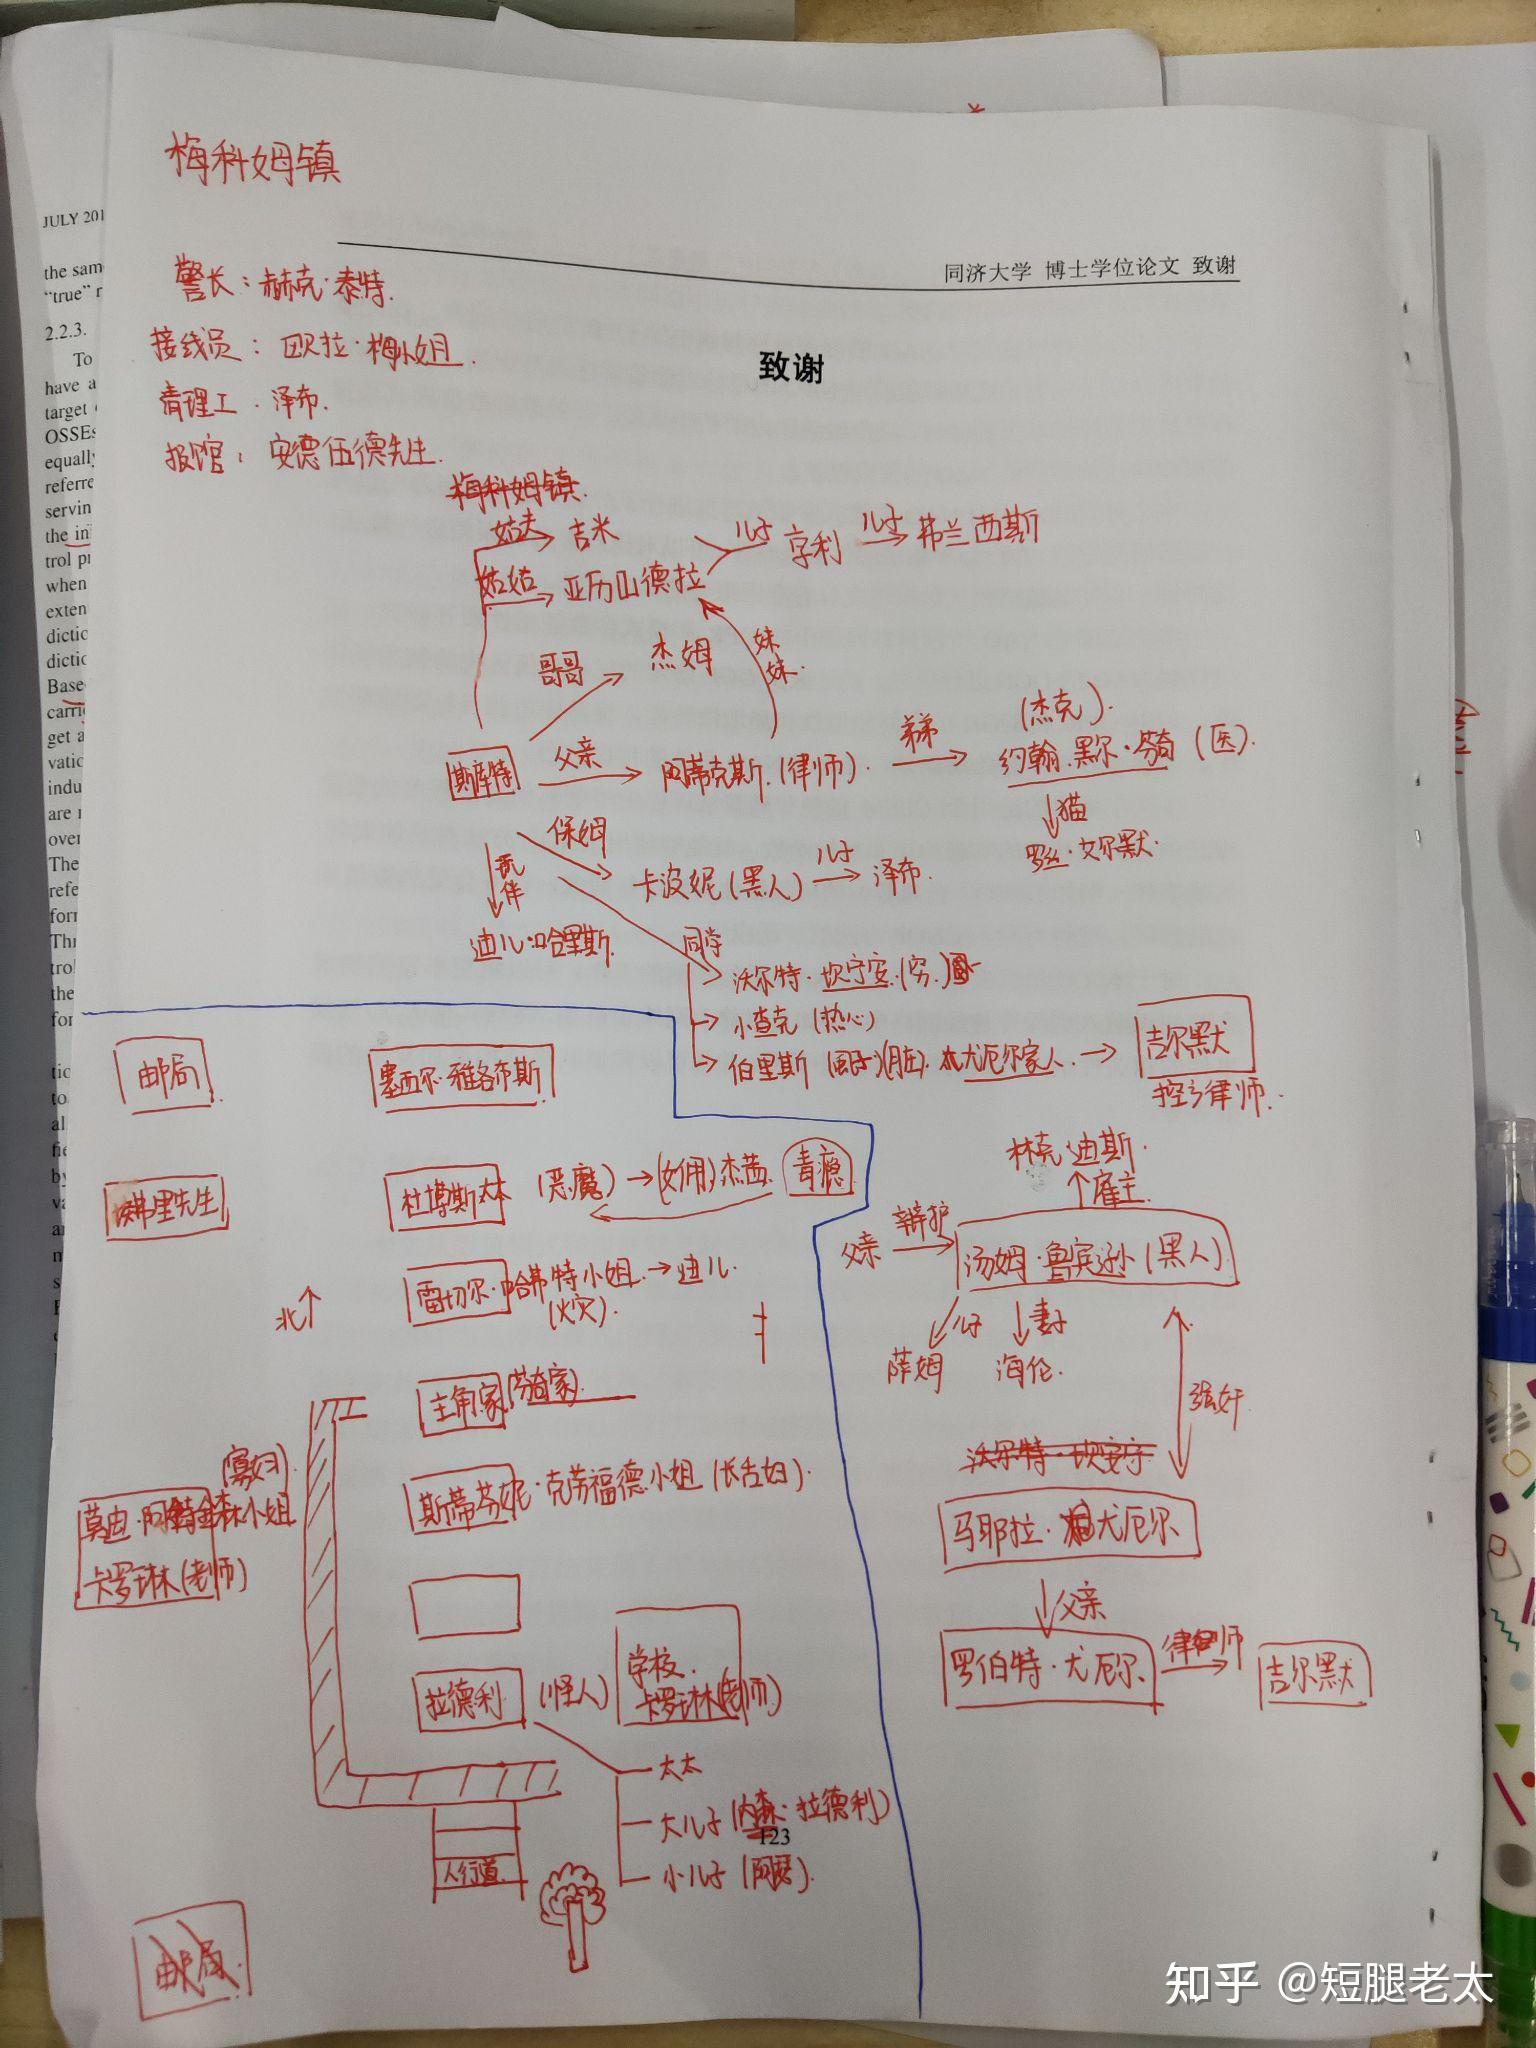 梅科姆镇
JULY 201
同济大学 博士学位论文 致谢
警长：赫克·泰特.
接线员：欧拉·梅小姐.
清理工.泽布.
报馆：安德伍德先生.
致谢
the sam
"true" r
2.2.3.
To
have a
target
OSSEs
equally
referre
servin
the in
trol pr
when
exten
dictio
dictio
Base
carri
get a
vatio
indu
are
over
The
refe
forr
Thr
trol
the
for
梅科姆镇.
姑夫 吉米 儿子 亨利 儿子 弗兰西斯
姑姑 亚历山德拉
哥哥 杰姆 妹妹.
(杰克).
斯库特 父亲 阿蒂克斯.(律师). 弟弟 约翰.黑尔·芬奇(医).
猫
罗丝·艾尔默.
保姆 卡波妮(黑人) 儿子 泽布.
玩伴
迪儿·哈里斯.
同学
沃尔特·坎宁安.(穷.)
小查克(热心)
伯里斯(虱子)(脏). 尤厄尔家人. 吉尔默
控方律师.
邮局 塞西尔·雅各布斯
埃弗里先生 杜博斯太太 (恶魔) (女佣)杰茜. 青瘾
雷切尔·哈弗特小姐. 迪儿.
(火灾).
北
主角家(芬奇家).
斯蒂芬妮·克劳福德小姐(长舌妇).
(寡妇).
莫迪·阿特金森小姐
卡罗琳(老师)
学校.
卡罗琳(老师)
拉德利 (怪人)
太太
大儿子(内森·拉德利)
123
小儿子(阿瑟).
人行道
邮局.
林克·迪斯.
雇主.
父亲 辩护 汤姆·鲁宾逊(黑人)
儿子 妻子
萨姆 海伦.
强奸
沃尔特·坎安宁
马耶拉·尤厄尔
父亲
罗伯特·尤厄尔 律师 吉尔默
知乎 @短腿老太